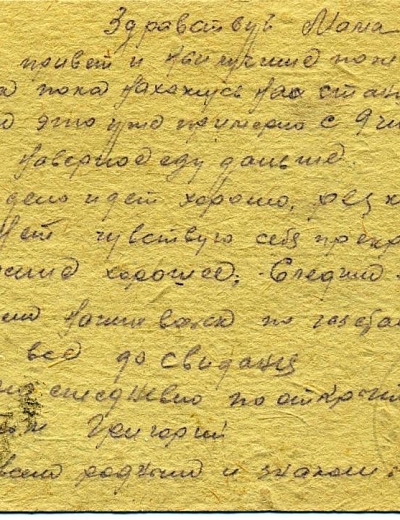 Здравствуй Мама
привет и наилучшие поже
а пока нахожусь на стан
это уже примерно с 9 чи
наверное еду дальше.
дело идет хорошо, рез
нет чувствую себя прекр
ение хорошее. Следим
наши по газетам
все до свиданя
ежедневно по открыт
Григорий
всем родным и знаком